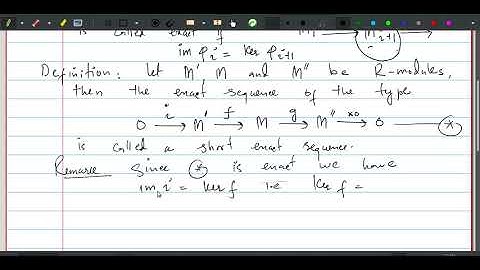 is called exact if M₁ M_{i+1}
im φ_i = ker φ_{i+1}
Definition: let M' M and M'' be R-modules,
then the exact sequence of the type
0 —i→ M' —f→ M —g→ M'' —x0→ 0 —— *
is called a short exact sequence.
Remark since * is exact we have
im i = ker f i.e ker f =